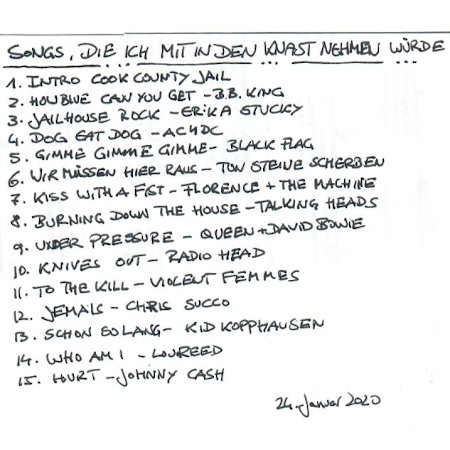 SONGS, DIE ICH MIT IN DEN KNAST NEHMEN WÜRDE
... ... ...
1. INTRO COOK COUNTY JAIL
2. HOW BLUE CAN YOU GET - B.B. KING
3. JAILHOUSE ROCK - ERIKA STUCKY
4. DOG EAT DOG - ACHDC
5. GIMME GIMME GIMME - BLACK FLAG
6. WIR MÜSSEN HIER RAUS - TON STEINE SCHERBEN
7. KISS WITH A FIST - FLORENCE + THE MACHINE
8. BURNING DOWN THE HOUSE - TALKING HEADS
9. UNDER PRESSURE - QUEEN + DAVID BOWIE
10. KNIVES OUT - RADIO HEAD
11. TO THE KILL - VIOLENT FEMMES
12. JEMALS - CHRIS SUCCO
13. SCHON SO LANG - KID KOPPHAUSEN
14. WHO AM I - LOU REED
15. HURT - JOHNNY CASH
24. Januar 2020